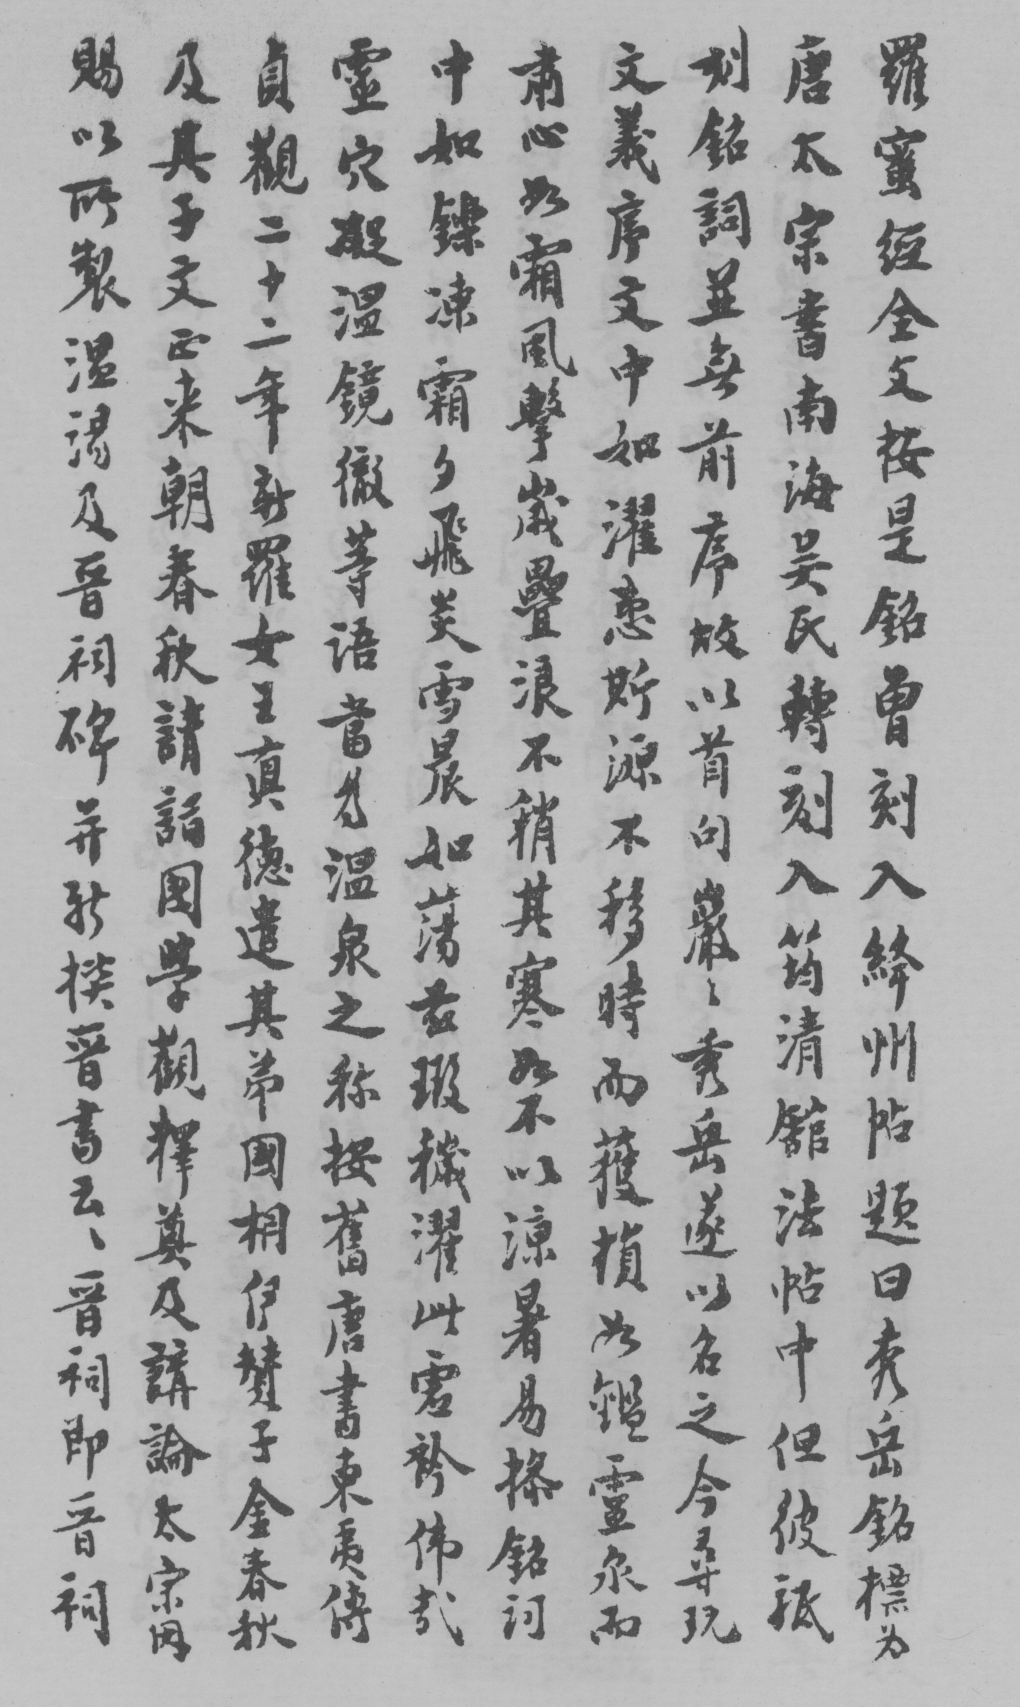 羅蜜經全文按是銘曾刻入絳州帖題曰秀岳銘標为
唐太宗書南海吳氏轉刻入筠清館法帖中但彼祇
刻銘詞並無前序故以首句巖〻秀岳遂以名之今尋玩
文義序文中如濯患斯源不移時而獲損如鑑靈泉而
肅心如霜風擊嵗疊浪不稍其寒如不以涼暑易操銘詞
中如鑠凍霜夕飛炎雪晨如蕩兹瑕穢濯此虛衿偉哉
靈穴凝溫鏡徹等語當是溫泉之稱按舊唐書東夷傳
貞觀二十二年新羅女王真德遣其弟國相伊贊子金春秋
及其子文正来朝春秋請詣國學觀釋奠及講論太宗因
賜以所製溫湯及晉祠碑并新撰晉書云〻晉祠即晉祠